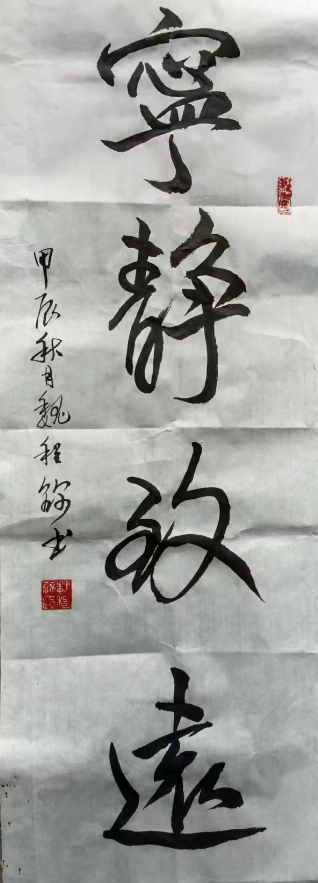 寧靜致遠
甲辰秋月魏程